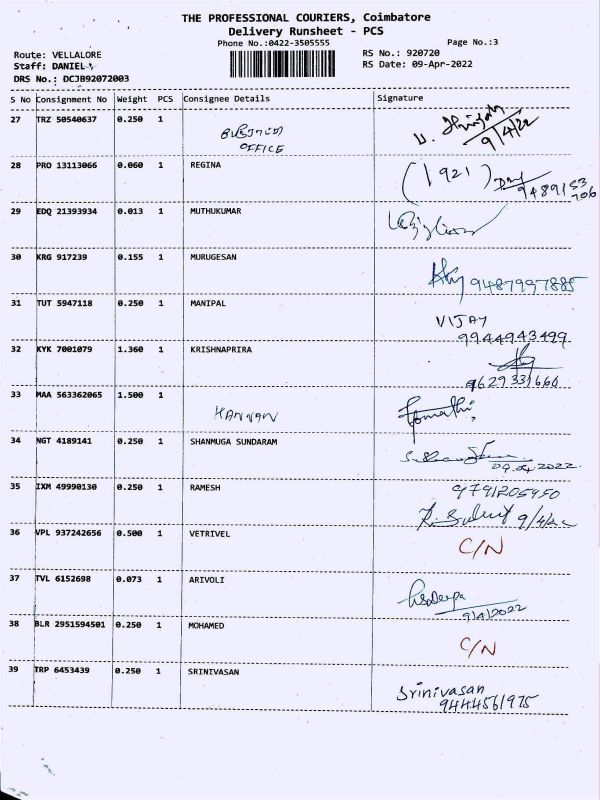 THE PROFESSIONAL COURIERS, Coimbatore
Delivery Runsheet - PCS
Phone No.:0422-3505555 Page No.:3
Route: VELLALORE RS No.: 920720
Staff: DANIEL RS Date: 09-Apr-2022
DRS No.: DCJB92072003
S No Consignment No Weight PCS Consignee Details Signature
27 TRZ 50540637 0.250 1
OFFICE
9/4/22
28 PRO 13113066 0.060 1 REGINA
(1921)
29 EDQ 21393934 0.013 1 MUTHUKUMAR
30 KRG 917239 0.155 1 MURUGESAN
9487997885
31 TUT 5947118 0.250 1 MANIPAL
VIJAY
9944943499
32 KYK 7001079 1.360 1 KRISHNAPRIRA
9629331660
33 MAA 563362065 1.500 1
KANNAN
34 NGT 4189141 0.250 1 SHANMUGA SUNDARAM
09.04.2022
35 IXM 49990130 0.250 1 RAMESH
9791205950
9/4/22
36 VPL 937242656 0.500 1 VETRIVEL
C/N
37 TVL 6152698 0.073 1 ARIVOLI
9/4/2022
38 BLR 2951594501 0.250 1 MOHAMED
C/N
39 TRP 6453439 0.250 1 SRINIVASAN
Srinivasan
9444561975